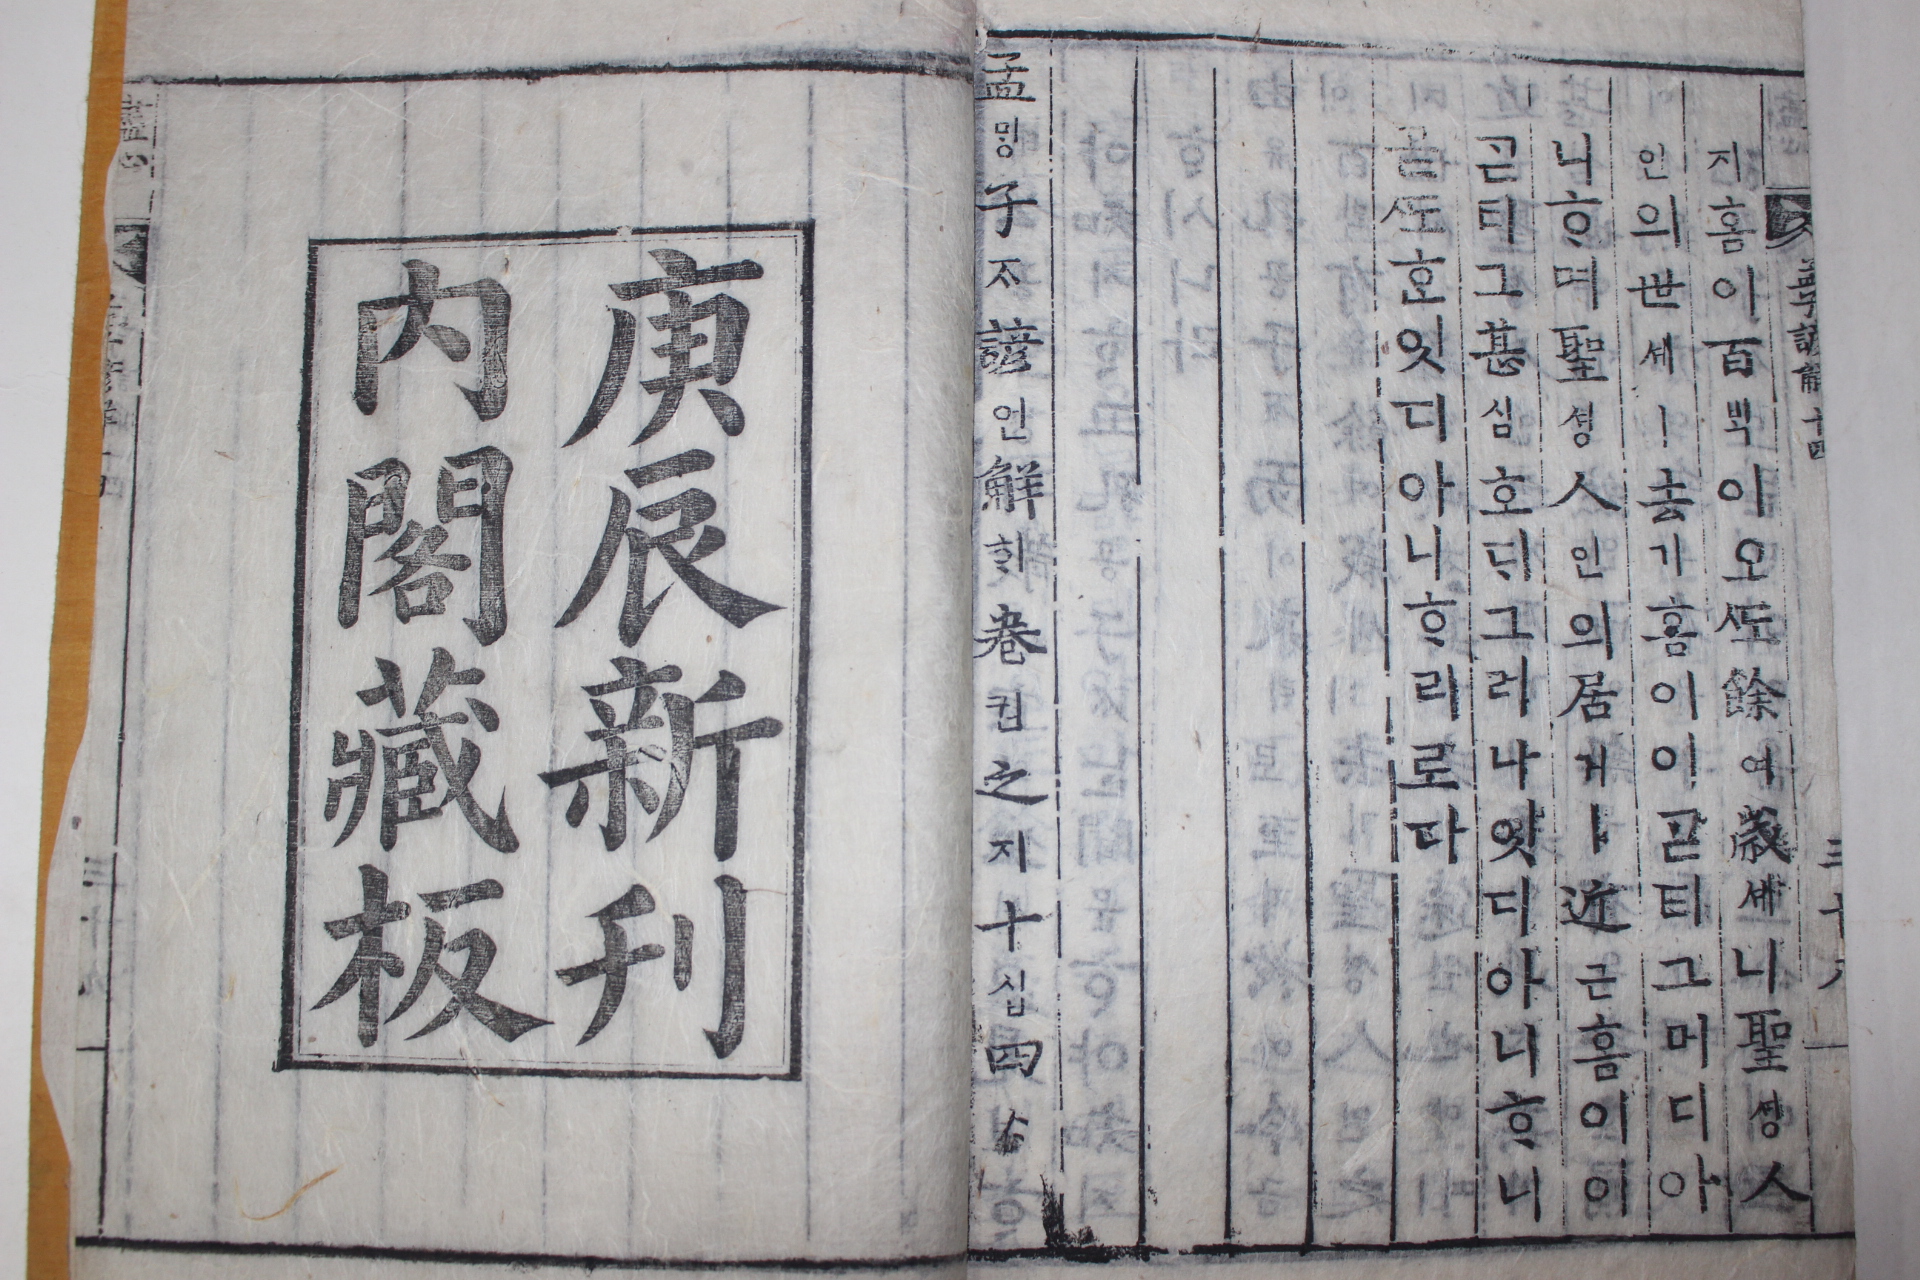 孟子諺解 十四
지홈이百ᄇᆡᆨ이오ᄯᅩ餘여歲셰니聖셩人
인의世셰ㅣ去거홈이이ᄀᆞᆮ티그머디아
니ᄒᆞ며聖셩人인의居거ㅣ近근홈이이
ᄀᆞᆮ티그甚심호ᄃᆡ그러나잇디아니ᄒᆞ니
곧ᄯᅩ호잇디아니ᄒᆞ리로다
孟ᄆᆡᆼ子ᄌᆞ諺언解ᄒᆡ卷권之지十십四ᄉᆞ
庚辰新刊
內閣藏板